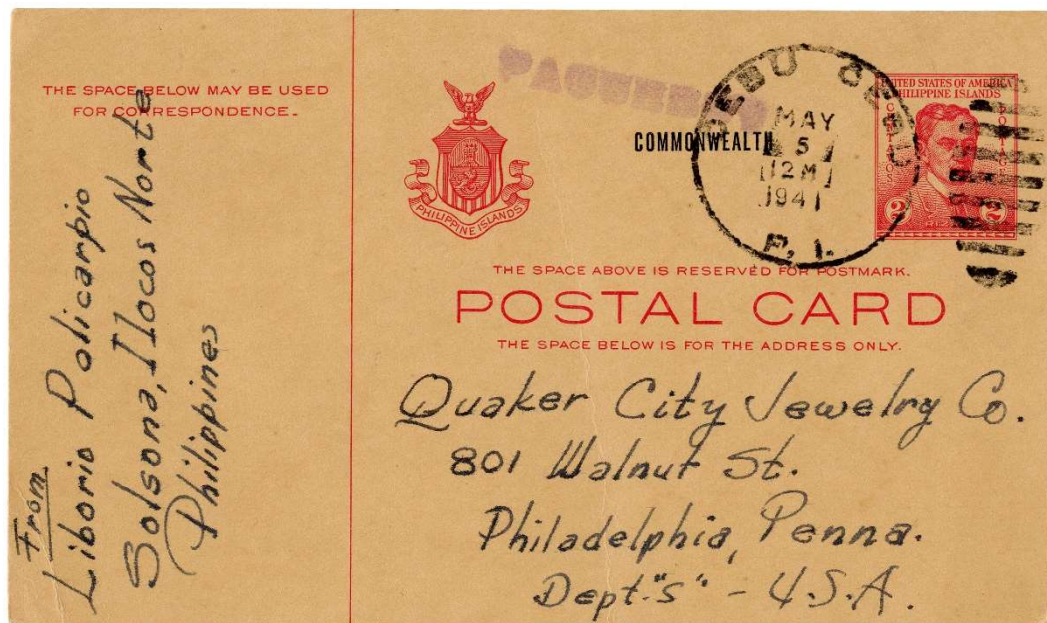 THE SPACE BELOW MAY BE USED
FOR CORRESPONDENCE.
From
Liborio Policarpio
Solsona, Ilocos Norte
Philippines
PHILIPPINE ISLANDS
PAQUEBOT
COMMONWEALTH
CEBU CEBU
MAY
5
12M
1941
P. I.
UNITED STATES OF AMERICA
PHILIPPINE ISLANDS
CENTAVOS
POSTAGE
2 2
THE SPACE ABOVE IS RESERVED FOR POSTMARK.
POSTAL CARD
THE SPACE BELOW IS FOR THE ADDRESS ONLY.
Quaker City Jewelry Co.
801 Walnut St.
Philadelphia, Penna.
Dept. "S" - U.S.A.